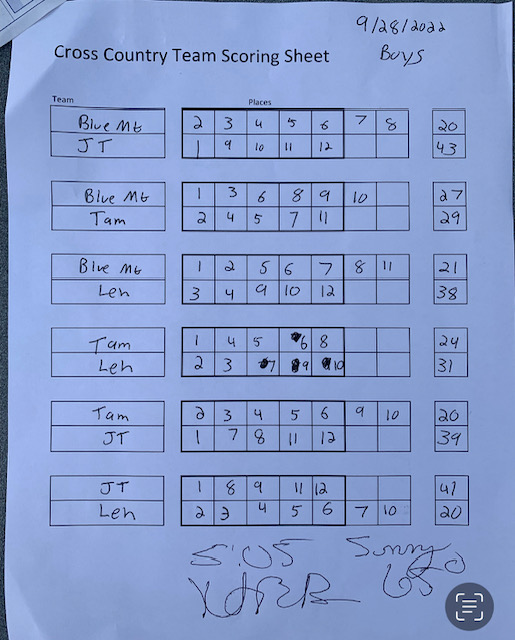 9/28/2022
Cross Country Team Scoring Sheet Boys
Team Places
Blue Mt 2 3 4 5 6 7 8 20
JT 1 9 10 11 12 43
Blue Mt 1 3 6 8 9 10 27
Tam 2 4 5 7 11 29
Blue Mt 1 2 5 6 7 8 11 21
Leh 3 4 9 10 12 38
Tam 1 4 5 6 8 24
Leh 2 3 7 9 10 31
Tam 2 3 4 5 6 9 10 20
JT 1 7 8 11 12 39
JT 1 8 9 11 12 41
Leh 2 3 4 5 6 7 10 20
5:05 Sunny
65